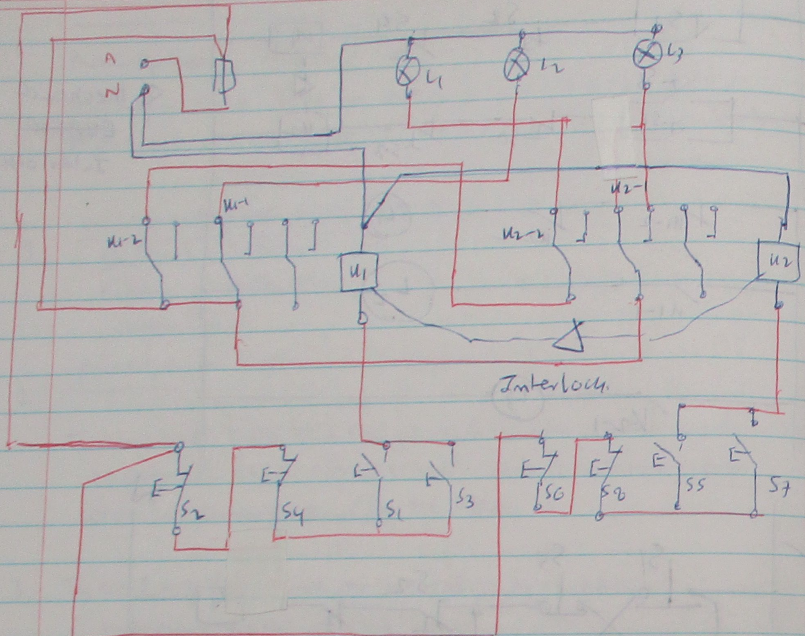 L1
L2
L3
N
K1-2
K1-1
K2-2
K2-
K1
K2
Interlock.
S2
S4
S1
S3
S6
S8
S5
S7